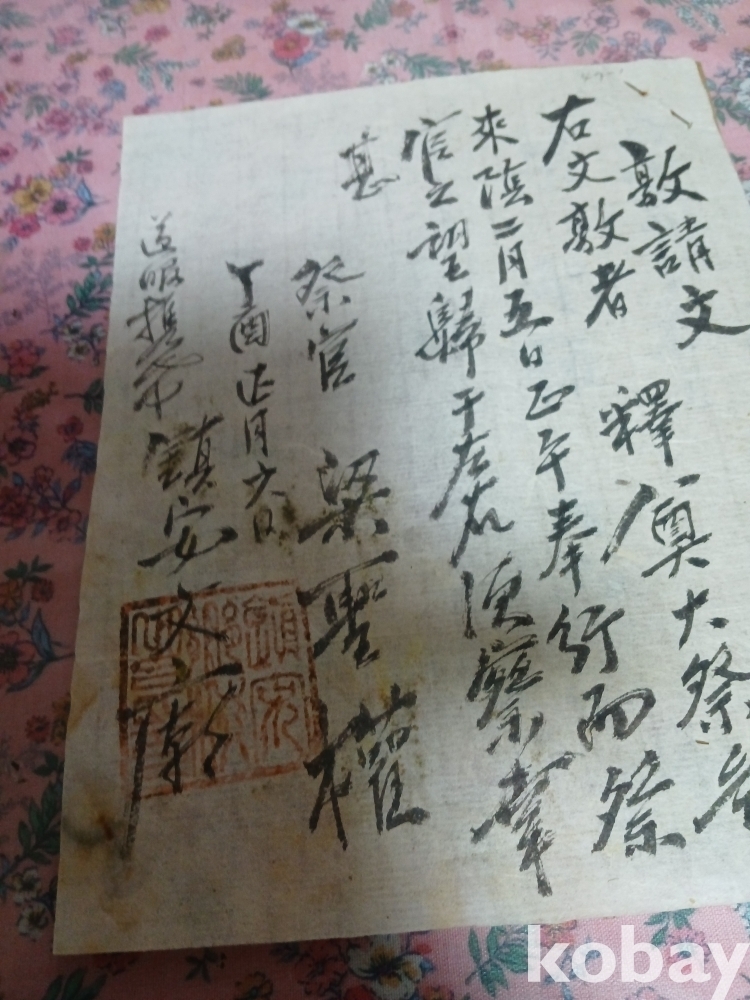 敦請文
右文敦者 釋奠大祭
來陰二月五日正午奉行而祭
官之望歸于左右 須察
祭官 梁聖權
丁酉 正月六日
鎮安文廟
kobay